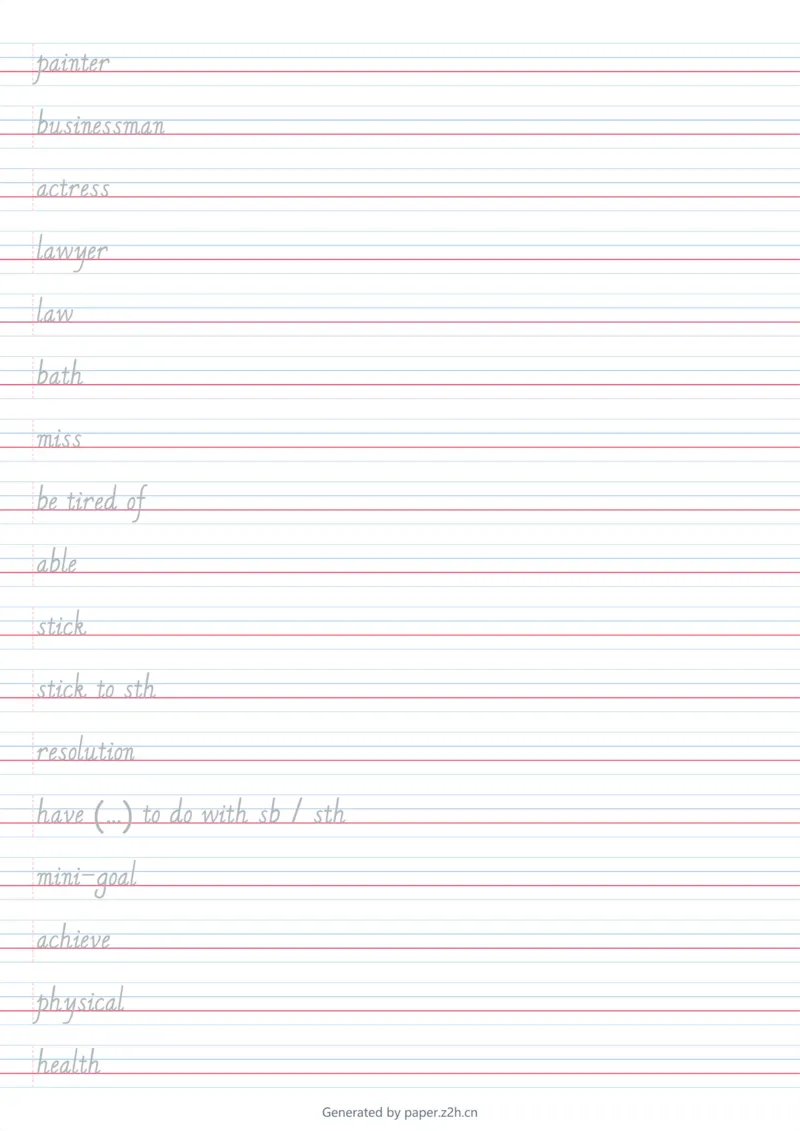 painter
businessman
actress
lawyer
law
bath
miss
be tired of
able
stick
stick to sth
resolution
have (...) to do with sb / sth
mini-goal
achieve
physical
health
Generated by paper.z2h.cn